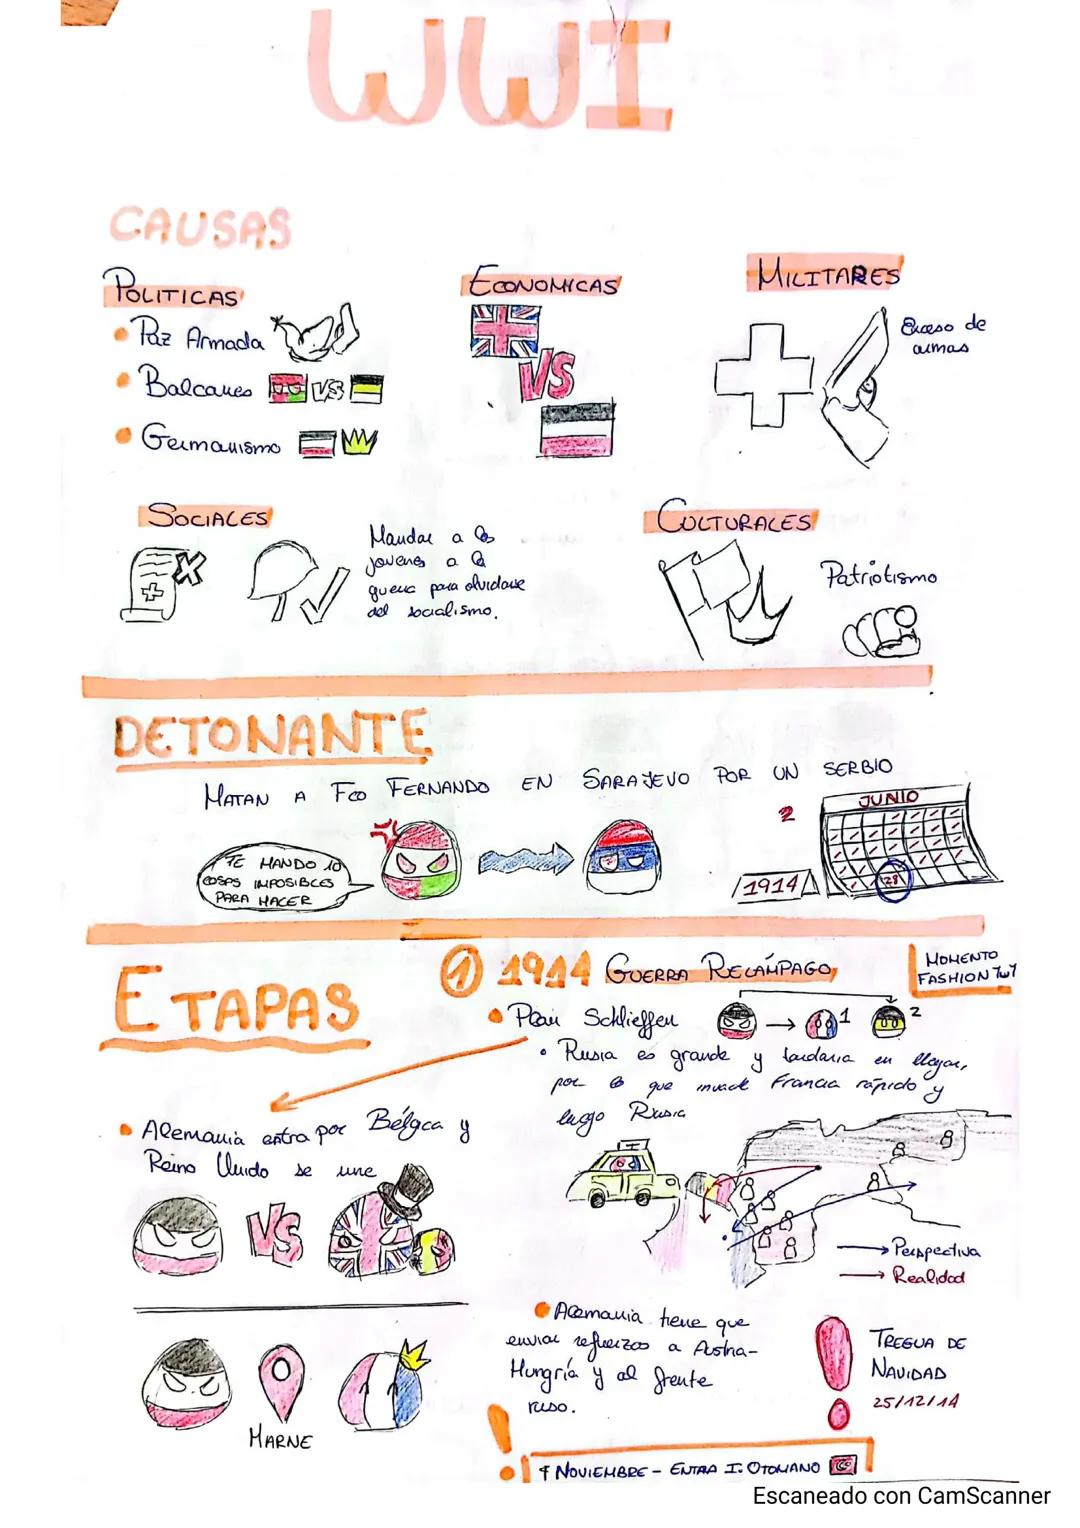 WWI
CAUSAS
POLITICAS
Paz Armada
Balcanes VS
Germanismo
ECONOMICAS
VS
MILITARES
Exceso de
armas
SOCIALES
Mandar a los
jovenes a la
guerra para olvidarse
del socialismo.
CULTURALES
Patriotismo
DETONANTE
MATAN A FCO FERNANDO EN SARAJEVO POR UN SERBIO
TE MANDO 10
COSAS IMPOSIBLES
PARA HACER
2
JUNIO
28
1914
ETAPAS
1 1914 GUERRA RELÁMPAGO
MOMENTO
FASHION
Plan Schlieffen
1
2
Rusia es grande y tardaria en llegar,
por lo que invade Francia rápido y
luego Rusia
Alemania entra por Bélgca y
Reino Unido se une
VS
Perspectiva
Realidad
MARNE
Alemania tiene que
enviar refuerzos a Austria-
Hungría y al frente
ruso.
TREGUA DE
NAVIDAD
25/12/14
NOVIEMBRE - ENTRA I. OTOMANO
Escaneado con CamScanner